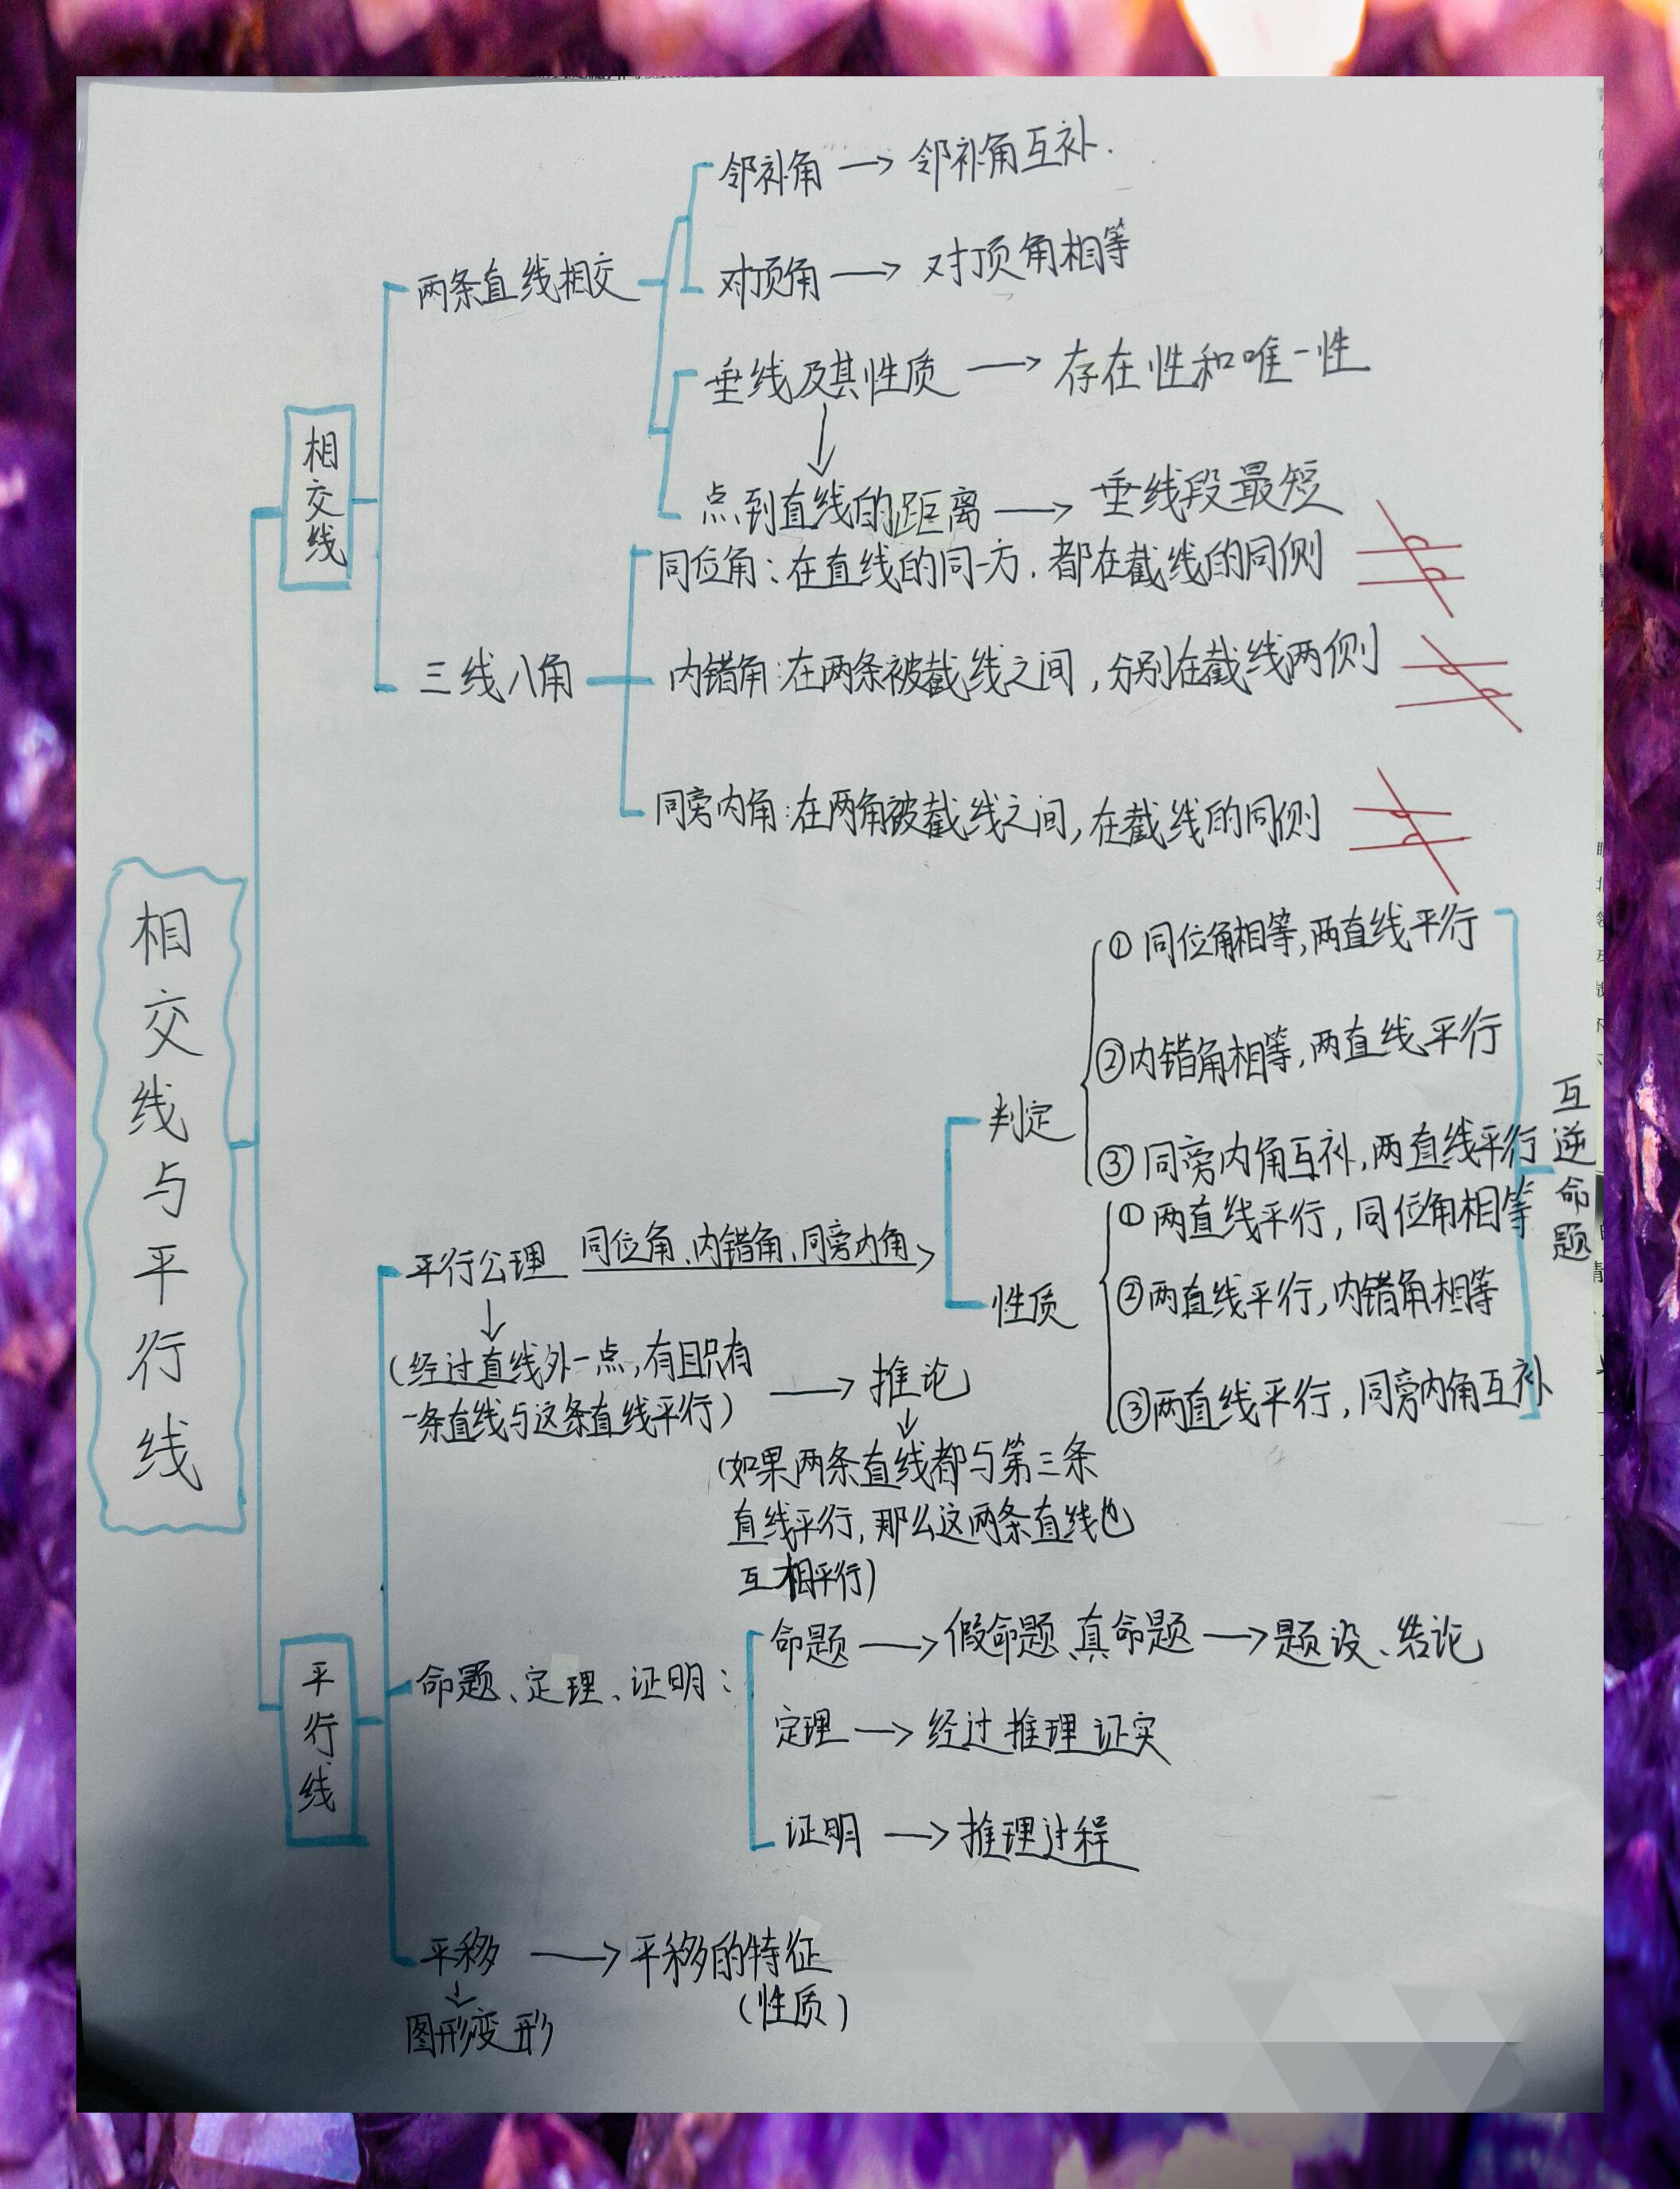 相交线与平行线
相交线
两条直线相交
邻补角 → 邻补角互补.
对顶角 → 对顶角相等
垂线及其性质 → 存在性和唯一性
↓
点到直线的距离 → 垂线段最短
三线八角
同位角:在直线的同一方.都在截线的同侧
内错角:在两条被截线之间,分别在截线两侧
同旁内角:在两角被截线之间,在截线的同侧
平行线
平行公理 同位角、内错角、同旁内角 →
判定
①同位角相等,两直线平行
②内错角相等,两直线平行
③同旁内角互补,两直线平行
性质
①两直线平行,同位角相等
②两直线平行,内错角相等
③两直线平行,同旁内角互补
互逆命题
↓
(经过直线外一点,有且只有
一条直线与这条直线平行) → 推论
↓
(如果两条直线都与第三条
直线平行,那么这两条直线也
互相平行)
命题、定理、证明:
命题 → 假命题、真命题 → 题设、结论
定理 → 经过推理证实
证明 → 推理过程
平移 → 平移的特征
(性质)
↓
图形变形